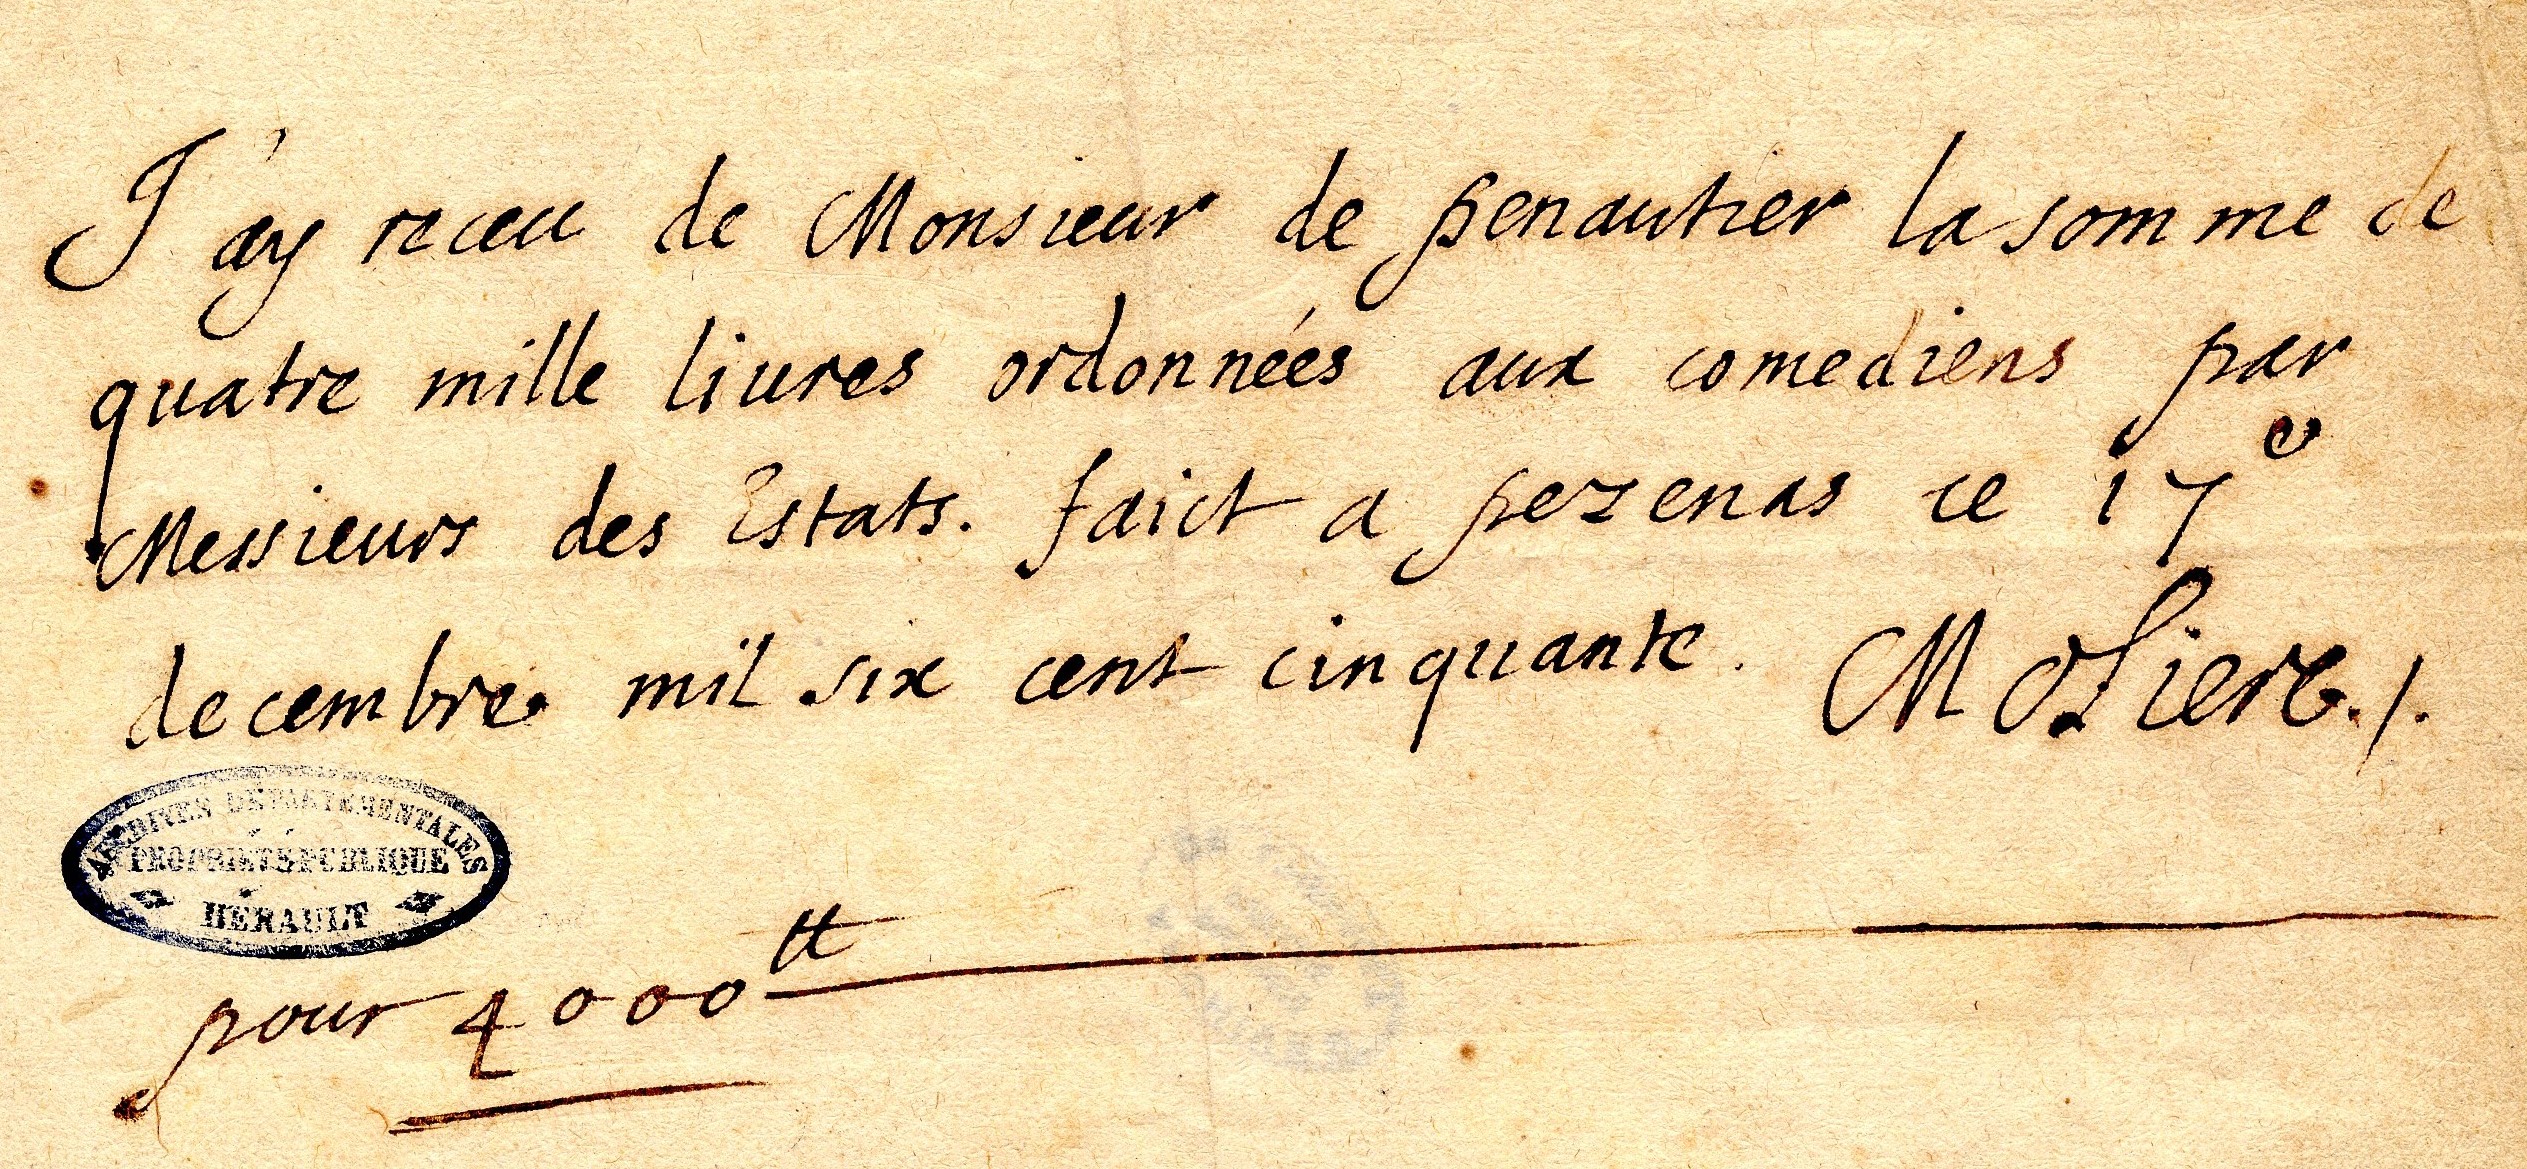 J'ay receu de Monsieur de penautier la somme de
quatre mille liures ordonnées aux comediens par
Messieurs des Estats. faict a pezenas ce 17e
decembre mil six cent cinquante. Moliere./.
ARCHIVES DÉPARTEMENTALES
PROPRIÉTÉ PUBLIQUE
HÉRAULT
pour 4000 tt